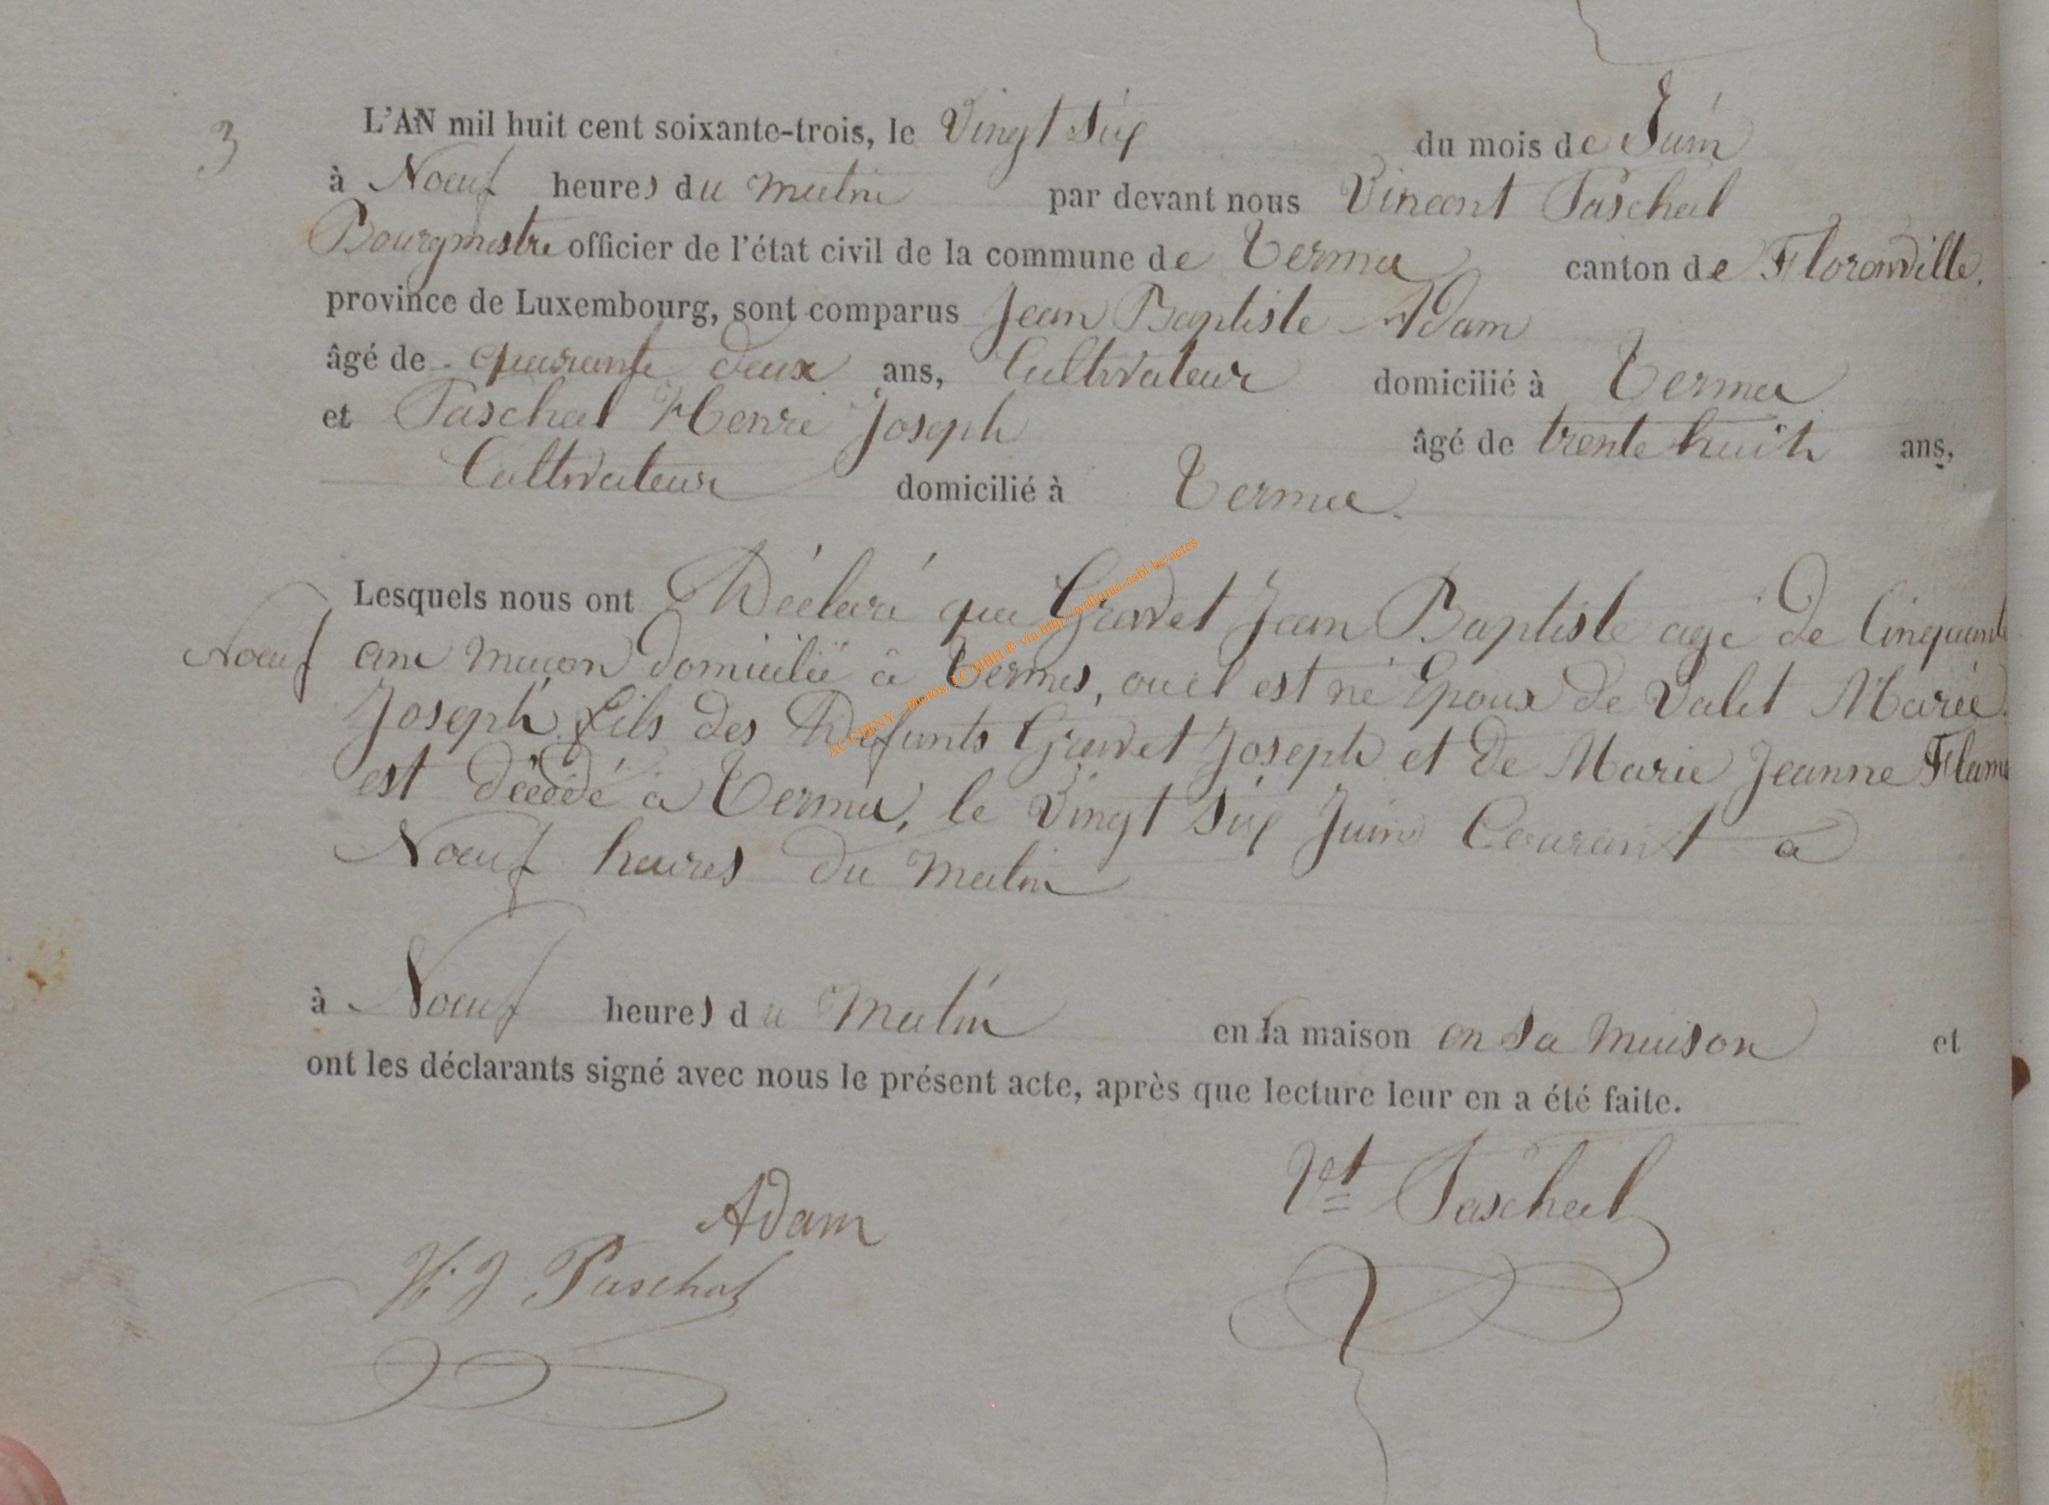 3
L'AN mil huit cent soixante-trois, le Vingt Six du mois de Juin
à Noeuf heures du matin par devant nous Vincent Paschal
Bourgmestre officier de l'état civil de la commune de Termes canton de Florenville,
province de Luxembourg, sont comparus Jean Baptiste Adam
âgé de quarante deux ans, Cultivateur domicilié à Termes
et Paschal Henri Joseph âgé de trente huit ans,
Cultivateur domicilié à Termes.
Lesquels nous ont Déclaré que Gravet Jean Baptiste agé de Cinquante
Noeuf ans maçon domicilié à Termes, ou il est né Epoux de Valet Marie
Joseph, fils des Défunts Gravet Joseph et de Marie Jeanne
est décédé à Termes, le Vingt Six Juin Courant à
Noeuf heures du matin
à Noeuf heures du Matin en la maison en sa maison et
ont les déclarants signé avec nous le présent acte, après que lecture leur en a été faite.
Adam
Vct Paschal
H. J Paschal
AC CHINY - photos LC MBH ® via http://wallonia-asbl.be/actes